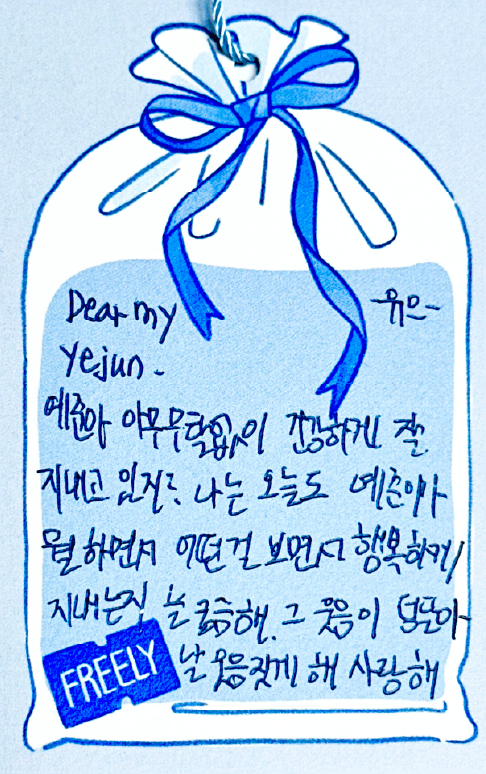 Dear my
Yejun.
예준아 아무 탈없이 건강하게 잘
지내고 있지? 나는 오늘도 예준이가
뭘 하면서 어떤걸 보면서 행복하게
지내는지 늘 궁금해. 그 웃음이
날 웃음짓게 해 사랑해
FREELY